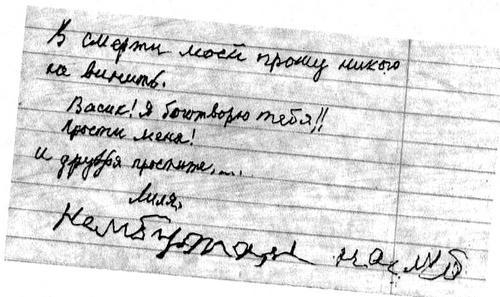 В смерти моей прошу никого
не винить.
Васик! Я боготворю тебя!!
Прости меня!
И друзья простите....
Лиля.
Нембутал нембута